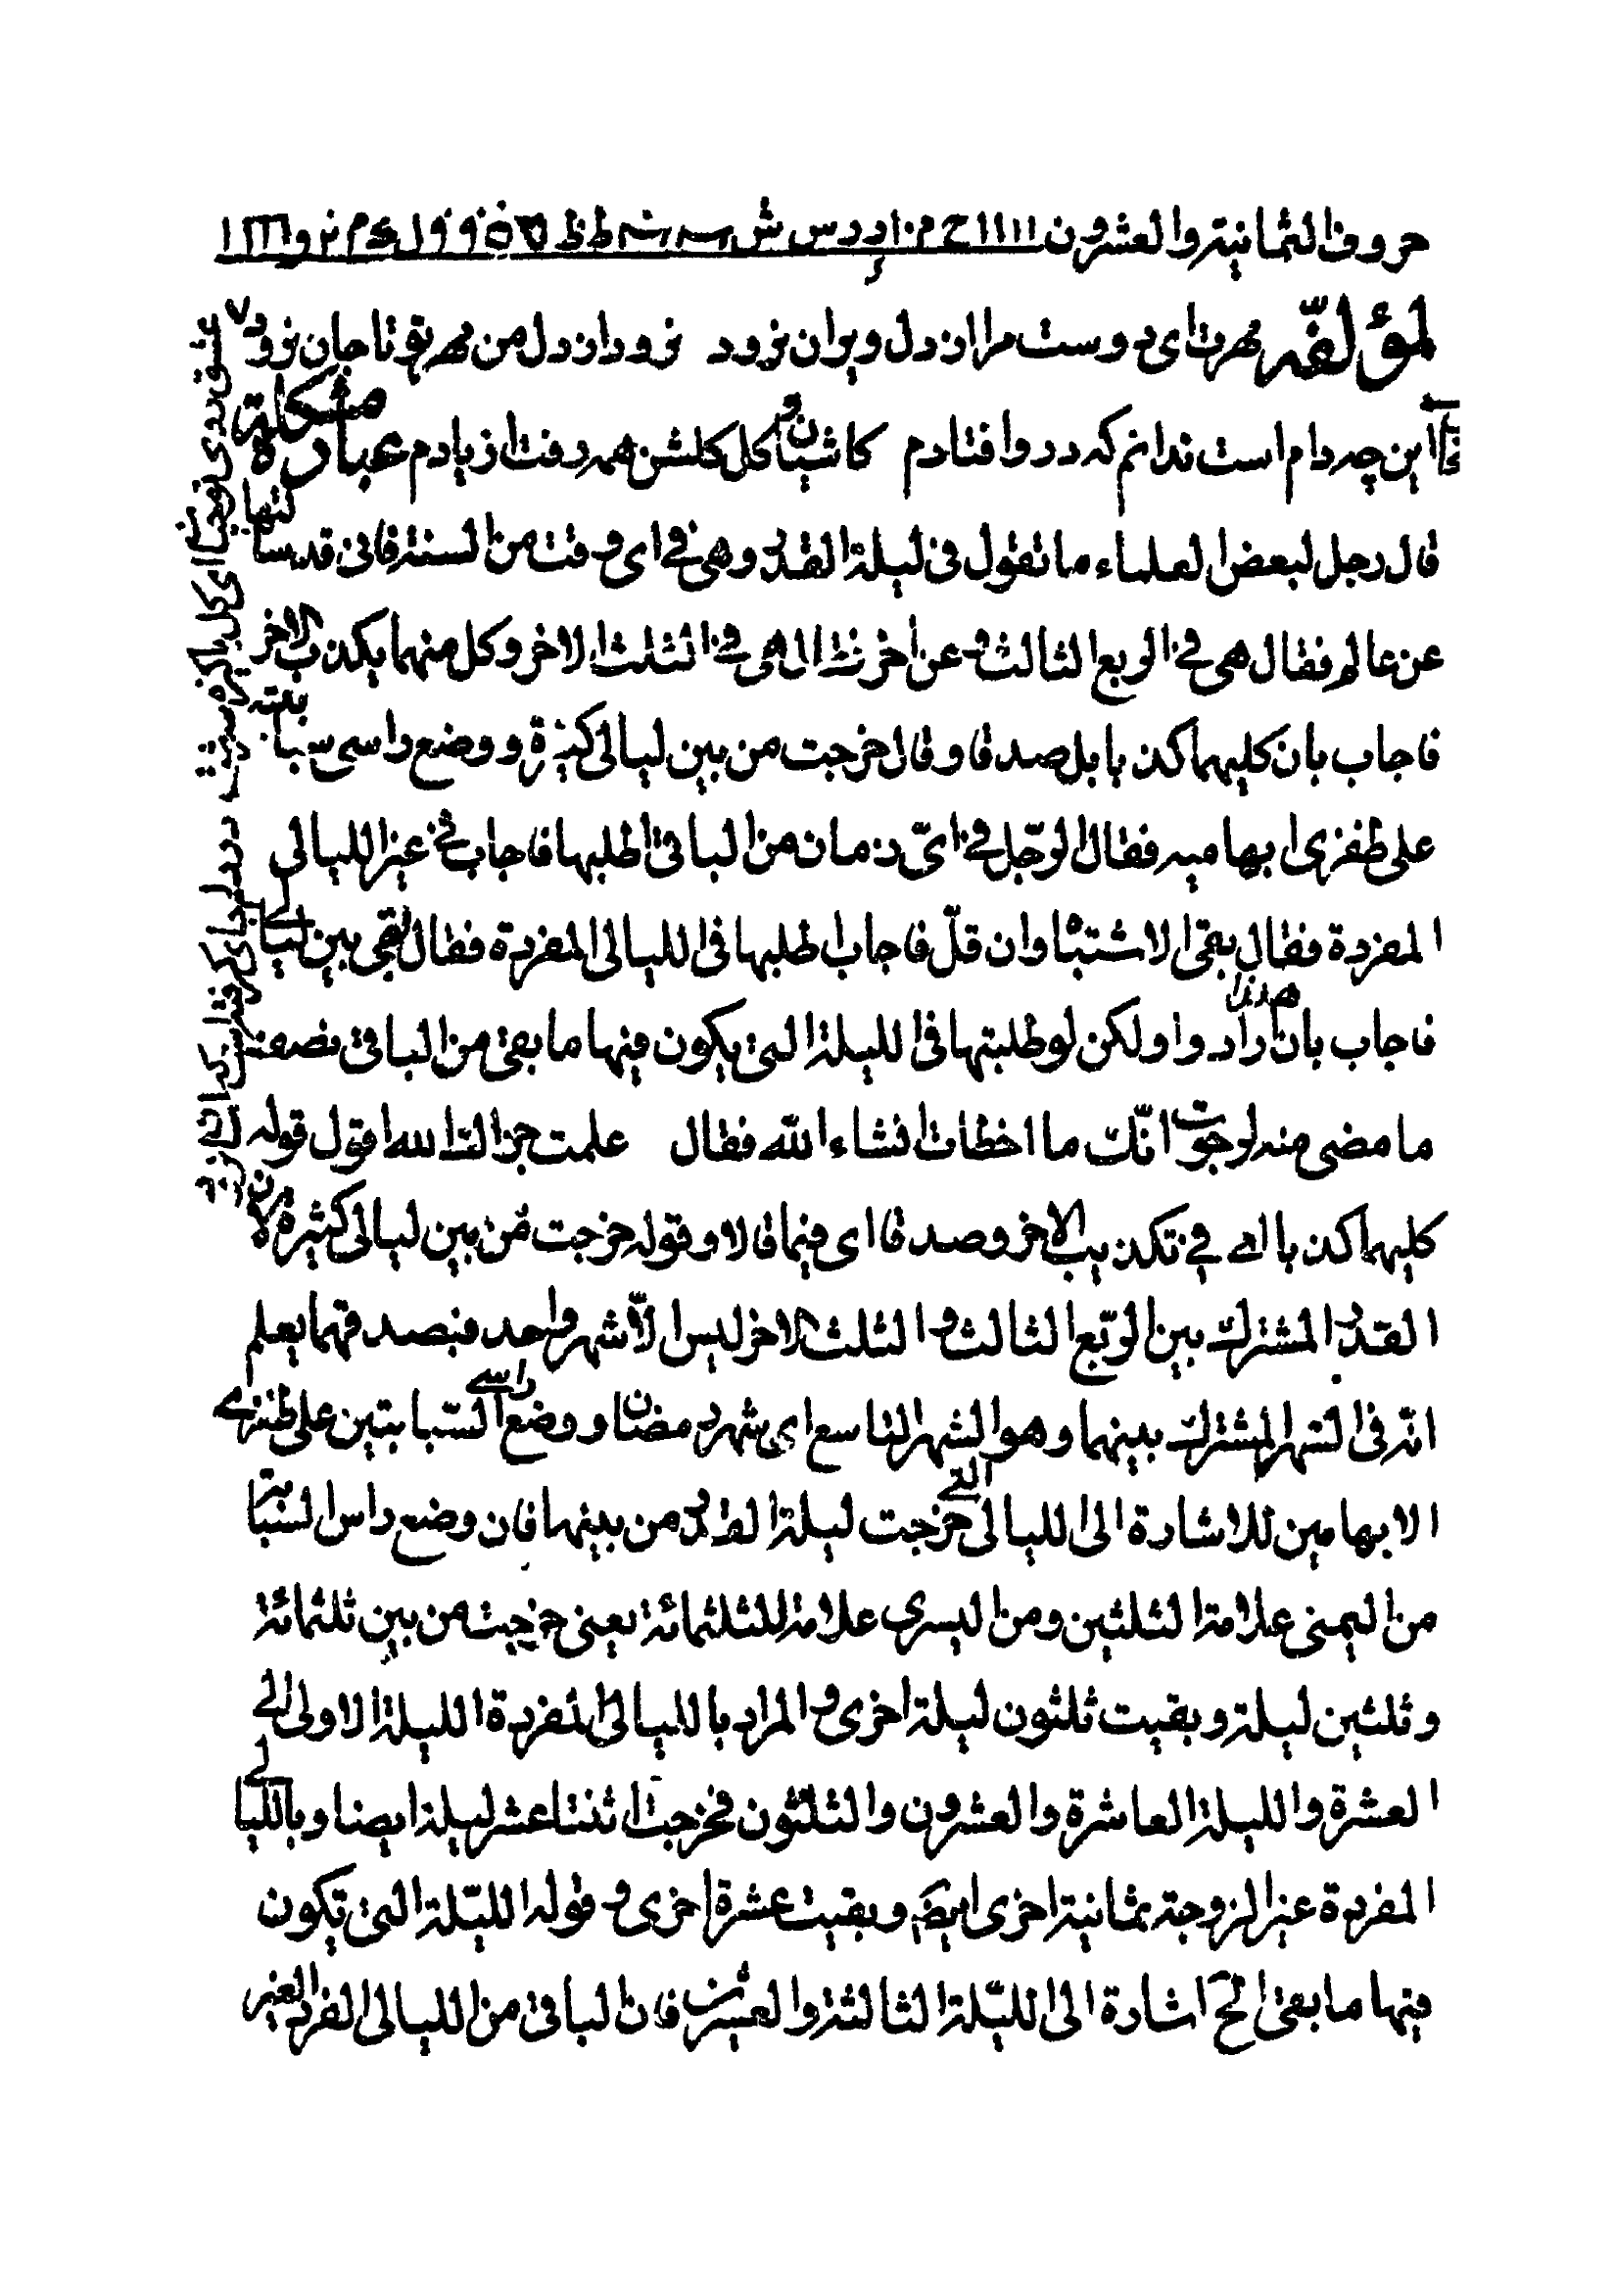 حروف الثمانية والعشرون
لمؤلفه مهرت ای دوست مرا از دل ویران نرود نرود از دل من مهر تو تا جان نرود
این چه دام است ندانم که درو افتادم کاشیان و گل گلشن همه رفت از یادم عبارة مشکلة
قال رجل لبعض العلماء ما تقول فی لیلة القدر وهی فی ای وقت من السنة فانی قد سألتها
عن عالم فقال هی فی الربع الثالث وعن اخر فقال هی فی الثلث الاخر وکل منهما یکذب الاخر
فاجاب بان کلیهما کذبا بل صدقا وقال خرجت من بین لیالی کثیرة ووضع راسی سبابتیه
علی ظفری ابهامیه فقال الرجل فی ای زمان من الباقی اطلبها فاجاب فی غیر اللیالی
المفردة فقال بقی الاشتباه وان قل فاجاب اطلبها فی اللیالی المفردة فقال بقی بین لیالی
فاجاب بان هذا زاد واولکن لو طلبتها فی اللیلة التی یکون فیها ما بقی من الباقی نصف
ما مضی منه لرجوت انک ما اخطات انشاء الله فقال علمت جزاک الله اقول قوله
کلیهما کذبا ای فی تکذیب الاخر وصدقا ای فیما قالا وقوله خرجت من بین لیالی کثیرة لان
القدر المشترک بین الربع الثالث والثلث الاخر لیس الا شهر واحد فبصدقهما یعلم
انه فی الشهر المشترک بینهما وهو الشهر التاسع ای شهر رمضان ووضع راسی السبابتین علی ظفری
الابهامین للاشارة الی اللیالی التی خرجت لیلة القدر من بینها فان وضع راس السبابة
من الیمنی علامة الثلثین ومن الیسری علامة للثلثمائة یعنی خرجت من بین ثلثمائة
وثلثین لیلة وبقیت ثلثون لیلة اخری والمراد باللیالی المفردة اللیلة الاولی الی
العشرة واللیلة العاشرة والعشرون والثلثون فخرجت اثنتا عشر لیلة ایضا وباللیالی
المفردة غیر الزوجة ثمانیة اخری ایضا وبقیت عشرة اخری وقوله اللیلة التی تکون
فیها ما بقی الخ اشارة الی اللیلة الثالثة والعشرین فان الباقی من اللیالی الفرد الغیر